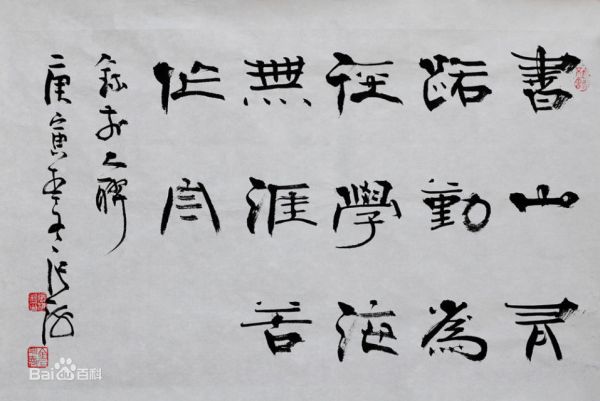 書山有
路勤為
徑學海
無涯苦
作舟
人聯
庚寅
張海
Bai百科